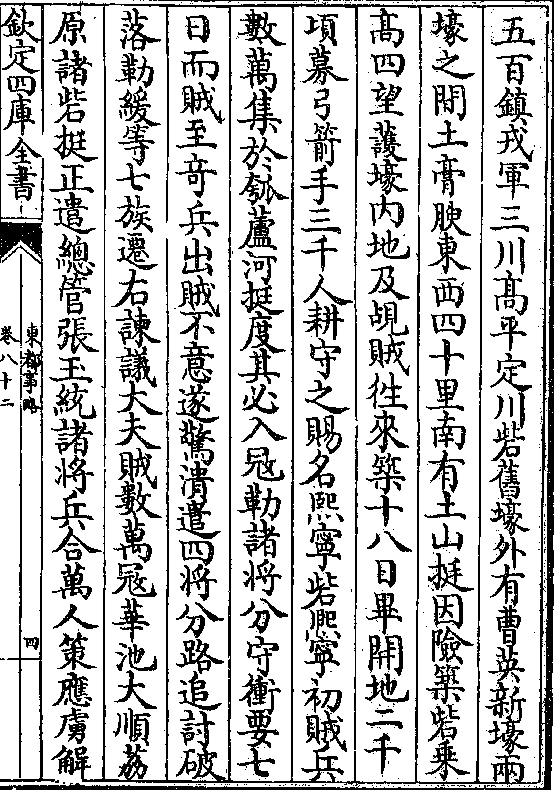 五百鎮戎軍三川髙平定川砦舊壕外有曹英新壕兩
壕之間土膏腴東西四十里南有土山挺因險築砦乗
髙四望䕶壕内地及覘賊往來築十八日畢開地二千
頃募弓箭手三千人耕守之賜名熈寧砦熈寧初賊兵
數萬集於瓠蘆河挺度其必入冦勒諸將分守衝要七
日而賊至竒兵出賊不意遂驚潰遣四將分路追討破
落勒緩等七族遷右諫議大夫賊數萬冦華池大順荔
原諸砦挺正遣總管張玉統諸將兵合萬人策應虜解
欽定四庫全書
東都事略
卷八十二
四